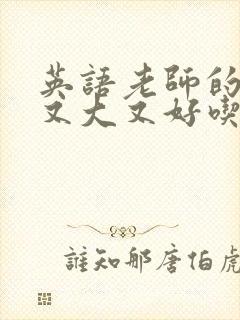 英語老師的
又大又好喫
誰知那唐伯虎